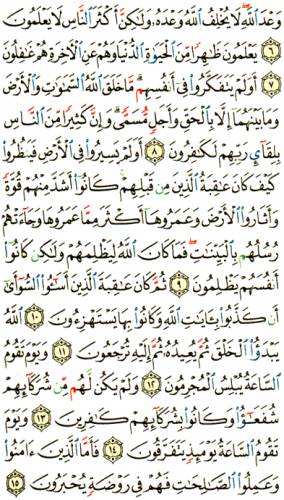 وَعْدَ ٱللَّهِ لَا يُخْلِفُ ٱللَّهُ وَعْدَهُۥ وَلَٰكِنَّ أَكْثَرَ ٱلنَّاسِ لَا يَعْلَمُونَ
۝٦ يَعْلَمُونَ ظَٰهِرًا مِّنَ ٱلْحَيَوٰةِ ٱلدُّنْيَا وَهُمْ عَنِ ٱلْءَاخِرَةِ هُمْ غَٰفِلُونَ
۝٧ أَوَلَمْ يَتَفَكَّرُوا۟ فِىٓ أَنفُسِهِم مَّا خَلَقَ ٱللَّهُ ٱلسَّمَٰوَٰتِ وَٱلْأَرْضَ
وَمَا بَيْنَهُمَآ إِلَّا بِٱلْحَقِّ وَأَجَلٍ مُّسَمًّى وَإِنَّ كَثِيرًا مِّنَ ٱلنَّاسِ
بِلِقَآئِ رَبِّهِمْ لَكَٰفِرُونَ ۝٨ أَوَلَمْ يَسِيرُوا۟ فِى ٱلْأَرْضِ فَيَنظُرُوا۟
كَيْفَ كَانَ عَٰقِبَةُ ٱلَّذِينَ مِن قَبْلِهِمْ كَانُوٓا۟ أَشَدَّ مِنْهُمْ قُوَّةً
وَأَثَارُوا۟ ٱلْأَرْضَ وَعَمَرُوهَآ أَكْثَرَ مِمَّا عَمَرُوهَا وَجَآءَتْهُمْ
رُسُلُهُم بِٱلْبَيِّنَٰتِ فَمَا كَانَ ٱللَّهُ لِيَظْلِمَهُمْ وَلَٰكِن كَانُوٓا۟
أَنفُسَهُمْ يَظْلِمُونَ ۝٩ ثُمَّ كَانَ عَٰقِبَةَ ٱلَّذِينَ أَسَٰٓـُٔوا۟ ٱلسُّوٓأَىٰٓ
أَن كَذَّبُوا۟ بِـَٔايَٰتِ ٱللَّهِ وَكَانُوا۟ بِهَا يَسْتَهْزِءُونَ ۝١٠ ٱللَّهُ
يَبْدَؤُا۟ ٱلْخَلْقَ ثُمَّ يُعِيدُهُۥ ثُمَّ إِلَيْهِ تُرْجَعُونَ ۝١١ وَيَوْمَ تَقُومُ
ٱلسَّاعَةُ يُبْلِسُ ٱلْمُجْرِمُونَ ۝١٢ وَلَمْ يَكُن لَّهُم مِّن شُرَكَآئِهِمْ
شُفَعَٰٓؤُا۟ وَكَانُوا۟ بِشُرَكَآئِهِمْ كَٰفِرِينَ ۝١٣ وَيَوْمَ
تَقُومُ ٱلسَّاعَةُ يَوْمَئِذٍ يَتَفَرَّقُونَ ۝١٤ فَأَمَّا ٱلَّذِينَ ءَامَنُوا۟
وَعَمِلُوا۟ ٱلصَّٰلِحَٰتِ فَهُمْ فِى رَوْضَةٍ يُحْبَرُونَ ۝١٥